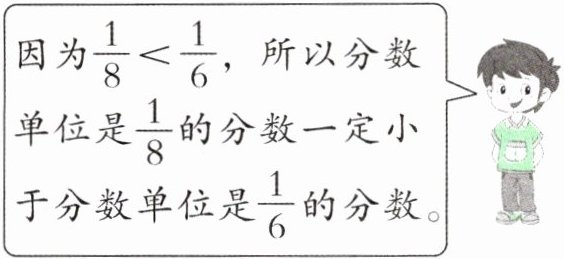 因为1/8<1/6，所以分数
单位是1/8的分数一定小
于分数单位是1/6的分数。